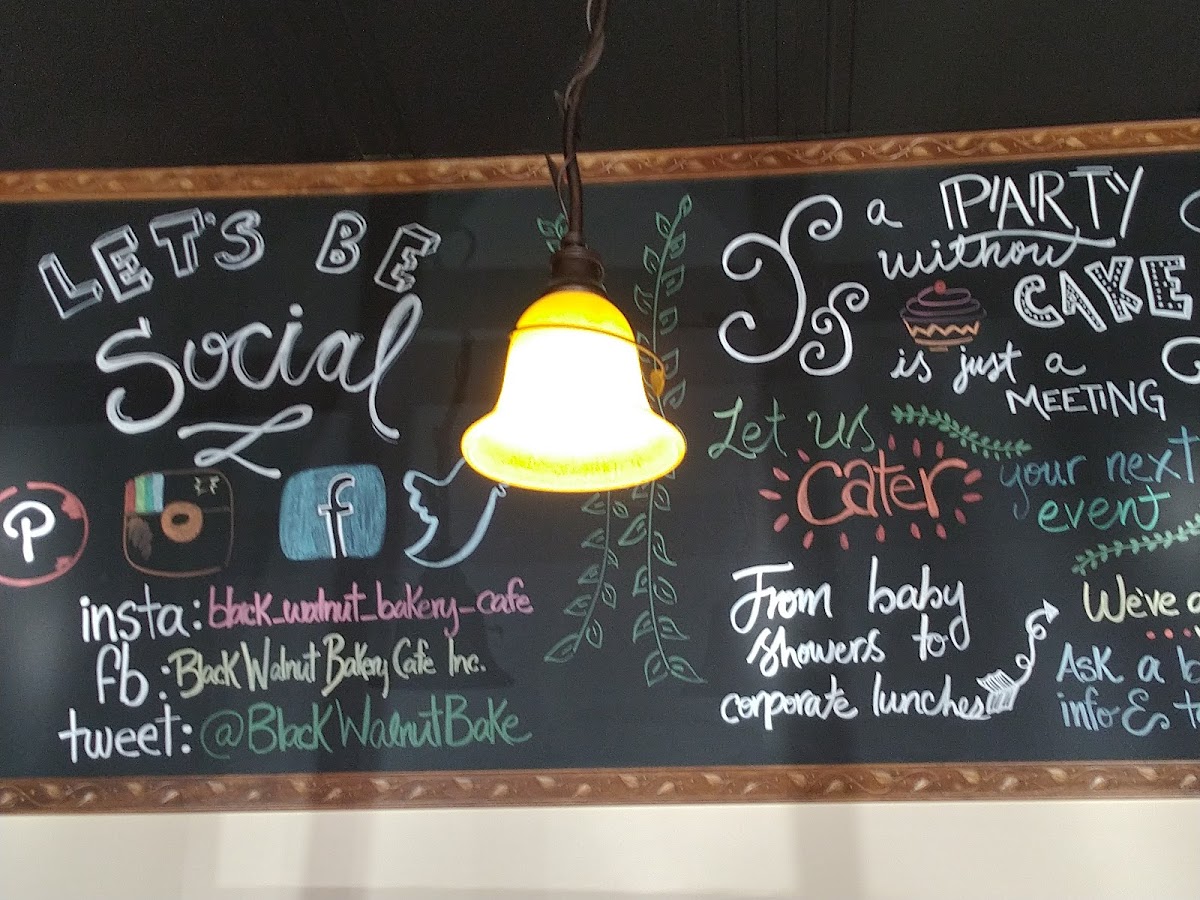 LET'S BE
Social
P
f
insta: black_walnut_bakery_cafe
fb: Black Walnut Bakery Cafe Inc.
tweet: @BlackWalnutBake
a PARTY
without
CAKE
is just a
MEETING
Let us
cater
your next
event
From baby
showers to
corporate lunches
We've
Ask a
info &